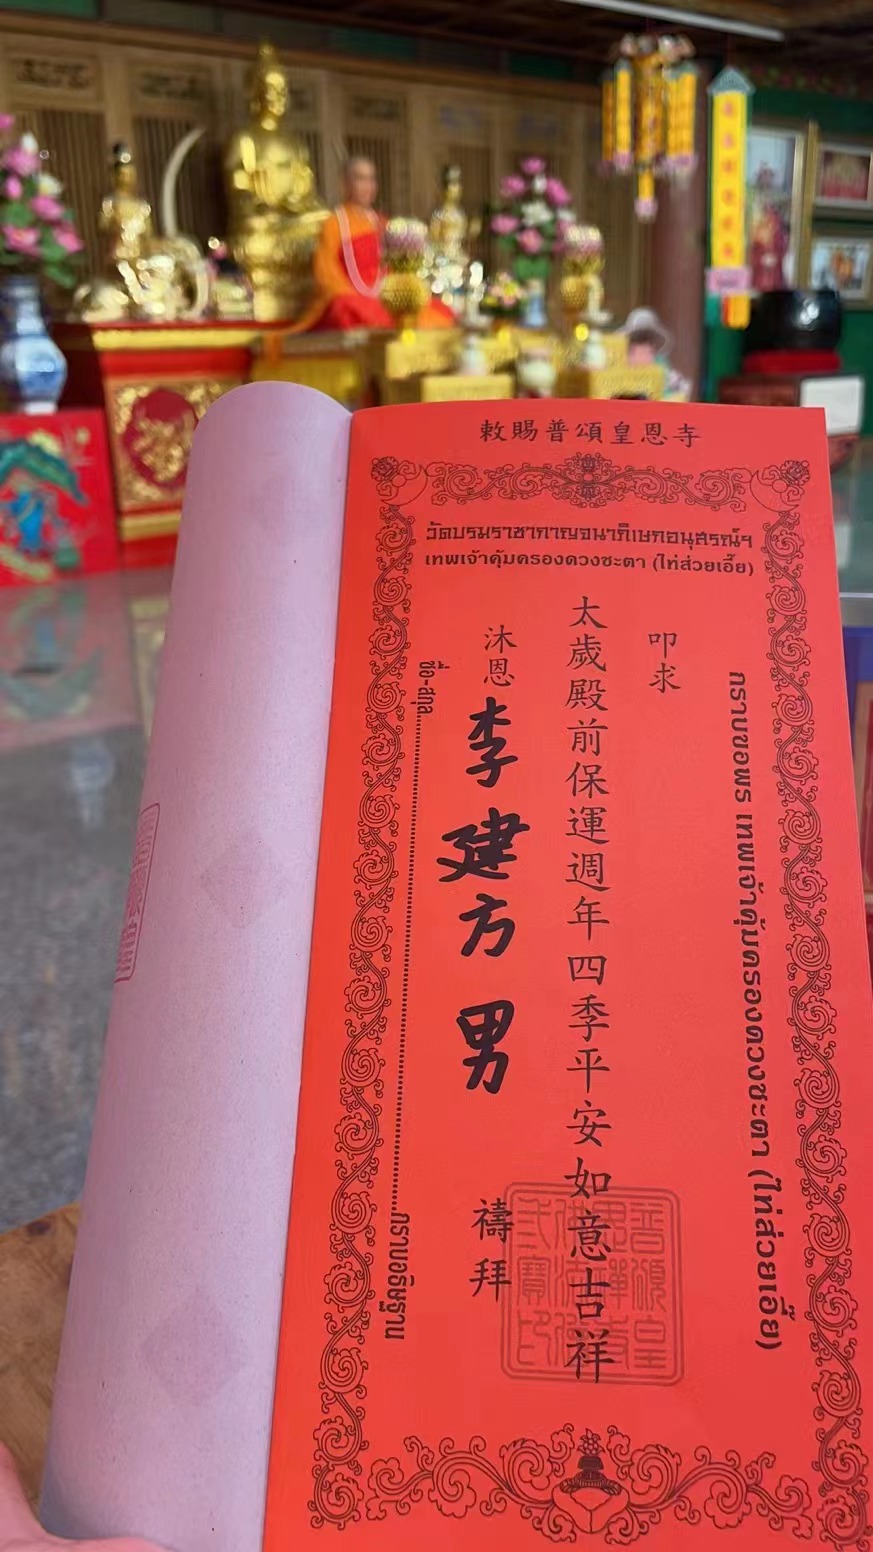 敕賜普頌皇恩寺
วัดบรมราชากาญจนาภิเษกอนุสรณ์ฯ
เทพเจ้าคุ้มครองดวงชะตา (ไท่ส่วยเอี๊ย)
กราบขอพร เทพเจ้าคุ้มครองดวงชะตา (ไท่ส่วยเอี๊ย)
叩求
太歲殿前保運週年四季平安如意吉祥
沐恩 李建方 男 禱拜
ชื่อ-สกุล....................กราบอธิษฐาน